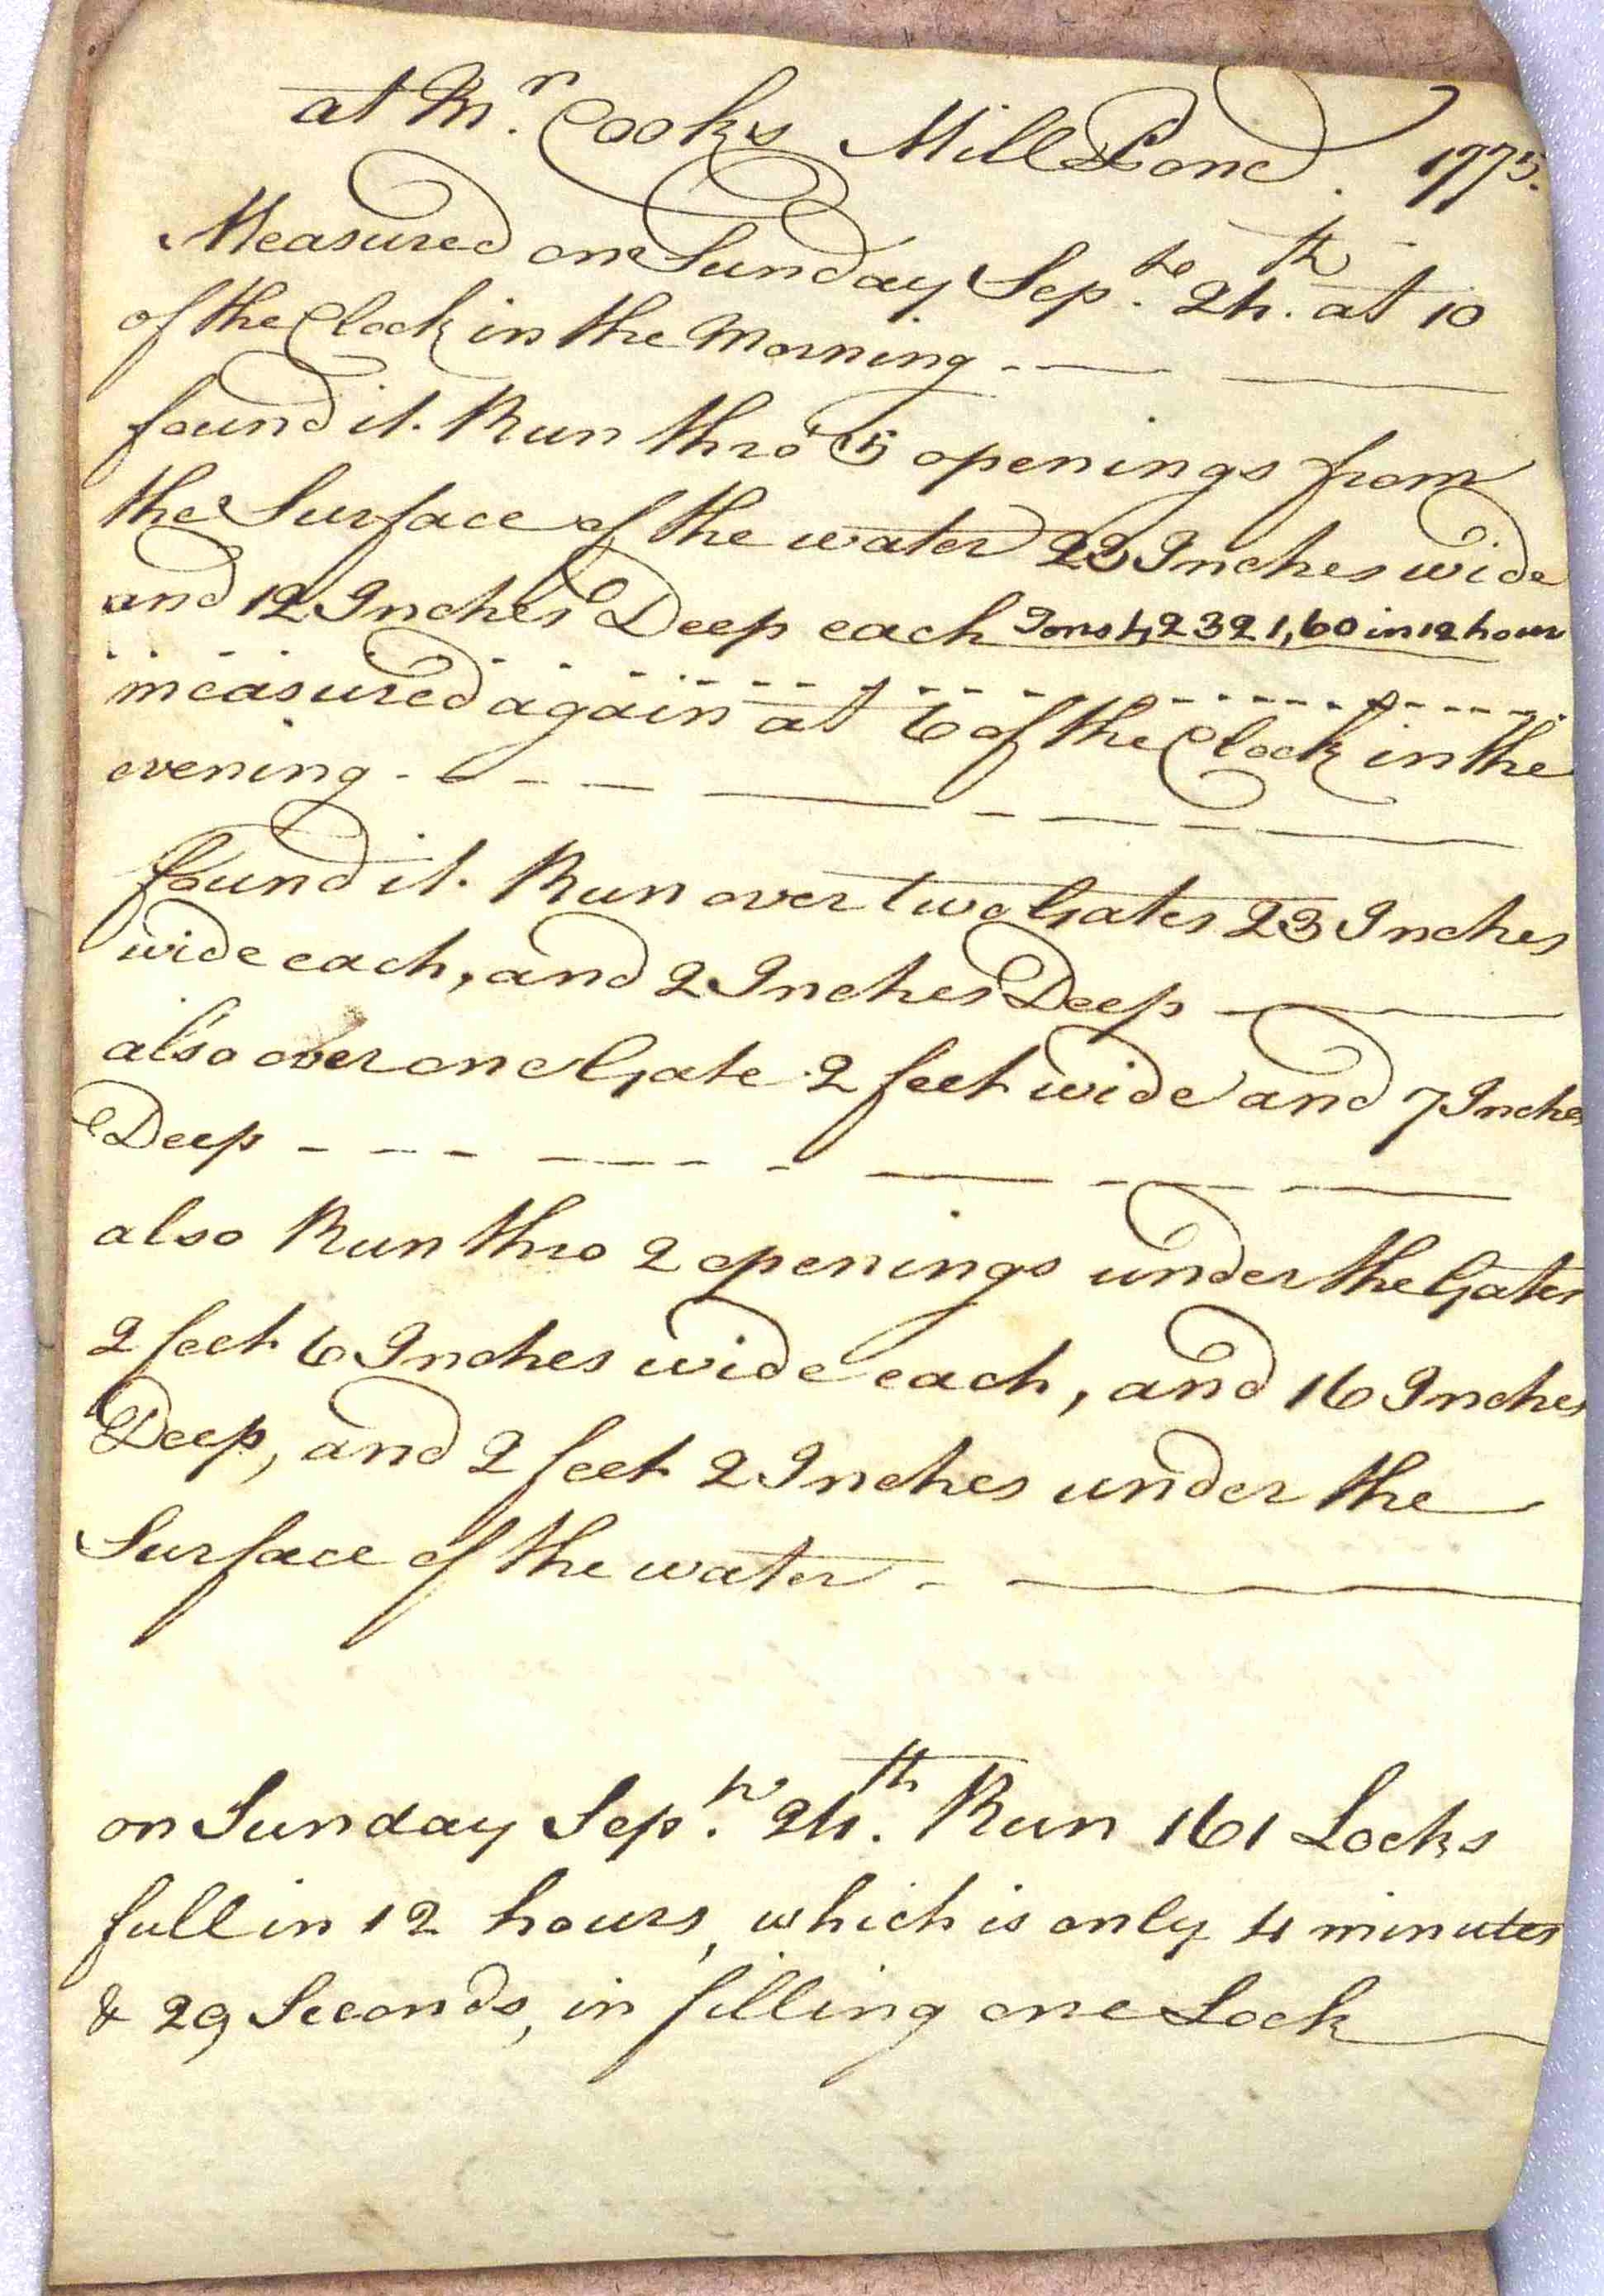 at Mr. Cooks Mill Pond. 1775.
Measured on Sunday Sepbr. 24th. at 10
of the Clock in the Morning - — —
found it. Run thro' 5 openings from
the Surface of the water 23 Inches wide
and 12 Inches Deep each Tons 42321,60 in 12 hour
measured again at 6 of the Clock in the
evening - - - - — - - - —
found it. Run over two Gates 23 Inches
wide each, and 2 Inches Deep —
also over one Gate 2 feet wide and 7 Inches
Deep - - - — - — - - —
also Run thro 2 openings under the Gates
2 feet 6 Inches wide each, and 16 Inches
Deep, and 2 feet 2 Inches under the
Surface of the water - —
on Sunday Sepr. 24th. Run 161 Locks
full in 12 hours, which is only 4 minutes
& 29 Seconds, in filling one Lock